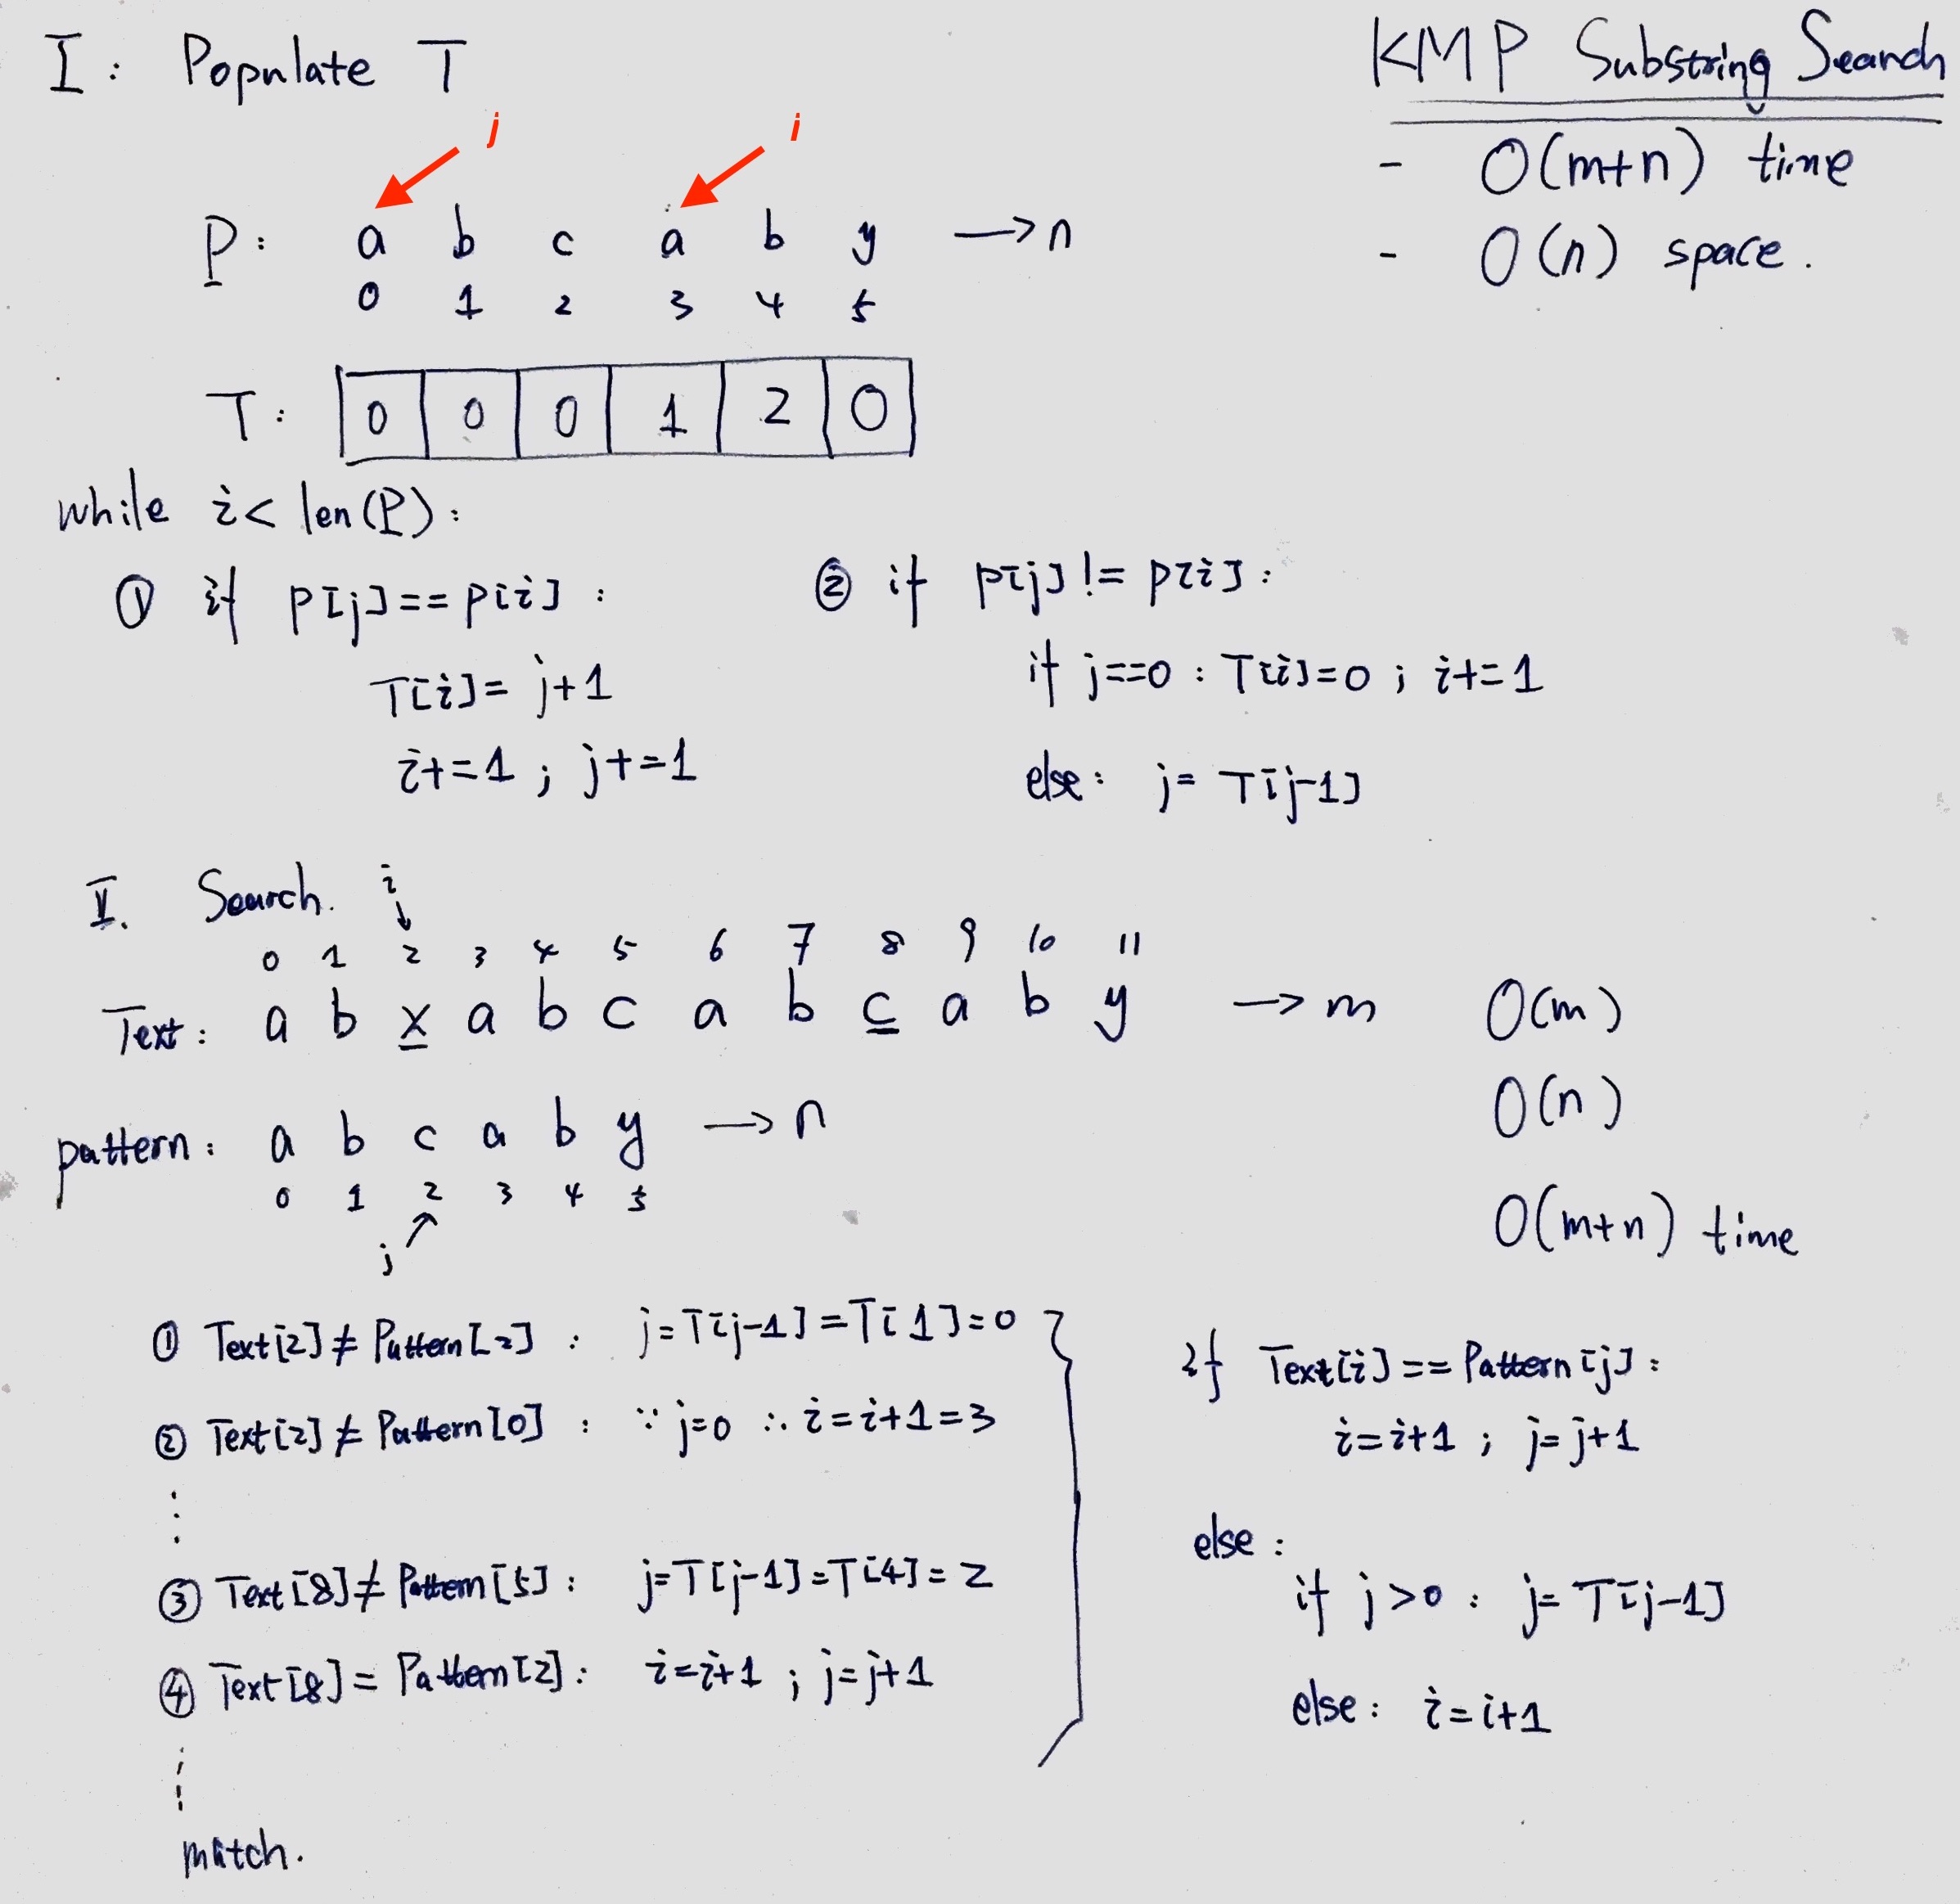 I: Populate T
KMP Substring Search
- O(m+n) time
- O(n) space.
j i
P: a b c a b y → n
0 1 2 3 4 5
T: 0 0 0 1 2 0
while i < len(P):
① if P[j]==P[i]:
T[i]= j+1
i+=1 ; j+=1
② if P[j]!= P[i]:
if j==0 : T[i]=0 ; i+=1
else: j= T[j-1]
II. Search.
i
0 1 2 3 4 5 6 7 8 9 10 11
Text: a b x a b c a b c a b y → m
O(m)
pattern: a b c a b y → n
O(n)
0 1 2 3 4 5
j
O(m+n) time
① Text[2] ≠ Pattern[2] : j=T[j-1]=T[1]=0
② Text[2] ≠ Pattern[0] : ∵ j=0 ∴ i=i+1=3
⋮
③ Text[8] ≠ Pattern[5] : j=T[j-1]=T[4]=2
④ Text[8] = Pattern[2]: i=i+1 ; j=j+1
⋮
match.
if Text[i]==Pattern[j]:
i=i+1 ; j=j+1
else :
if j>0 : j= T[j-1]
else: i=i+1